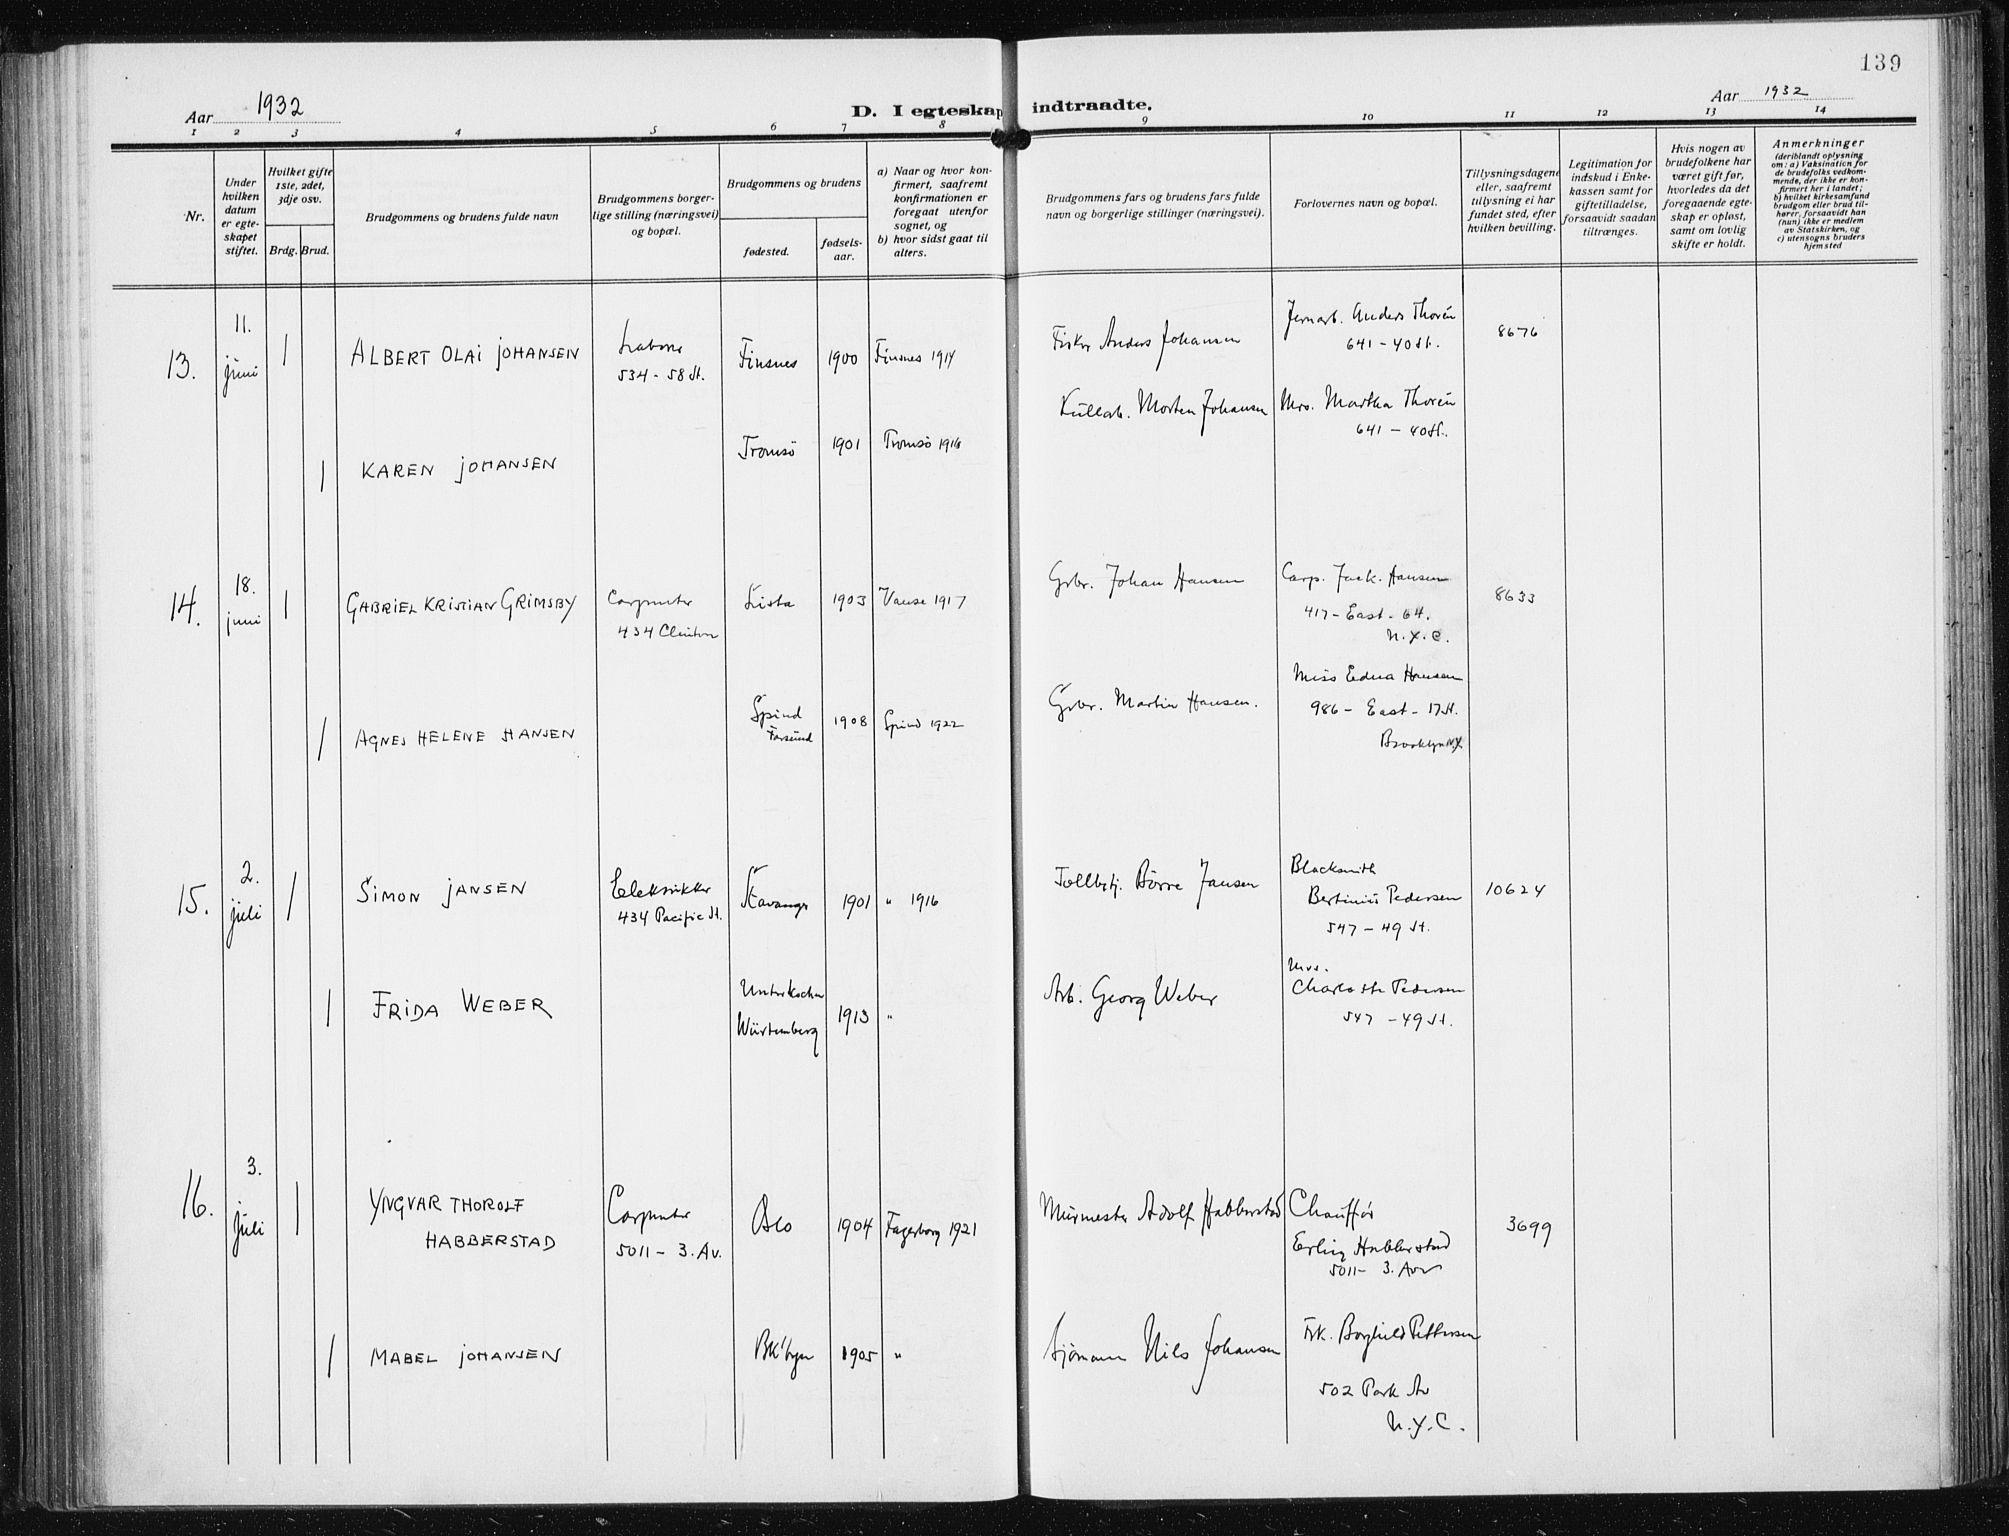 139
Aar 1932
D. I egteskap indtraadte.
Aar 1932
1 2 3 4 5 6 7 8 9 10 11 12 13 14
Nr.
Under hvilken datum er egteskapet stiftet.
Hvilket gifte 1ste, 2det, 3dje osv.
Brdg. Brud.
Brudgommens og brudens fulde navn
Brudgommens borgerlige stilling (næringsvei) og bopæl.
Brudgommens og brudens
fødested.
fødselsaar.
a) Naar og hvor konfirmert, saafremt konfirmationen er foregaat utenfor sognet, og
b) hvor sidst gaat til alters.
Brudgommens fars og brudens fars fulde navn og borgerlige stillinger (næringsvei).
Forlovernes navn og bopæl.
Tillysningsdagene eller, saafremt tillysning ei har fundet sted, efter hvilken bevilling.
Legitimation for indskud i Enkekassen samt for giftetilladelse, forsaavidt saadan tiltrænges.
Hvis nogen av brudefolkene har været gift før, hvorledes da det foregaaende egteskap er opløst, samt om lovlig skifte er holdt.
Anmerkninger
(deriblandt oplysning om: a) Vaksination for de brudefolks vedkommende, der ikke er konfirmert her i landet; b) hvilket kirkesamfund brudgom eller brud tilhører, forsaavidt han (hun) ikke er medlem av Statskirken, og c) utensogns bruders hjemsted
13. 11. juni 1 ALBERT OLAI JOHANSEN
534 - 58 St.
Finsnes 1900 Finsnes 1914
Fisker Anders Johansen
Jernarb. Anders Thorén
641 - 40 St.
8676
1 KAREN JOHANSEN
Tromsö 1901 Tromsö 1916
Morten Johansen
Mrs. Martha Thorén
641 - 40 St.
14. 18. juni 1 GABRIEL KRISTIAN GRIMSBY
Carpenter
434 Clinton
Lista 1903 Vanse 1917
Grbr. Johan Hansen
Carp. Jack. Hansen
417 - East - 64.
N.Y.C.
8633
1 AGNES HELENE HANSEN
Spind
Farsund
1908 Spind 1922
Grbr. Martin Hansen.
Miss Edna Hansen
986 - East - 17 St.
Brooklyn N.Y.
15. 2. juli 1 SIMON JANSEN
Elektriker
434 Pacific St.
Stavanger 1901 " 1916
Tollbetj. Börre Jansen
Blacksmith
Bertinius Pedersen
547 - 49 St.
10624
1 FRIDA WEBER
Würtemberg
1913 "
Arb. Georg Weber
Mrs.
Charlotte Pedersen
547 - 49 St.
16. 3. juli 1 YNGVAR THOROLF
HABBERSTAD
Carpenter
5011 - 3. Av.
Oslo 1904 Fagerborg 1921
Murmester Adolf Habberstad
Chauffør
Erling Habberstad
5011 - 3. Ave
3699
1 MABEL JOHANSEN
Bk'lyn 1905 "
Sjömann Nils Johansen
Frk. Borghild Pettersen
502 Park Av
N.Y.C.